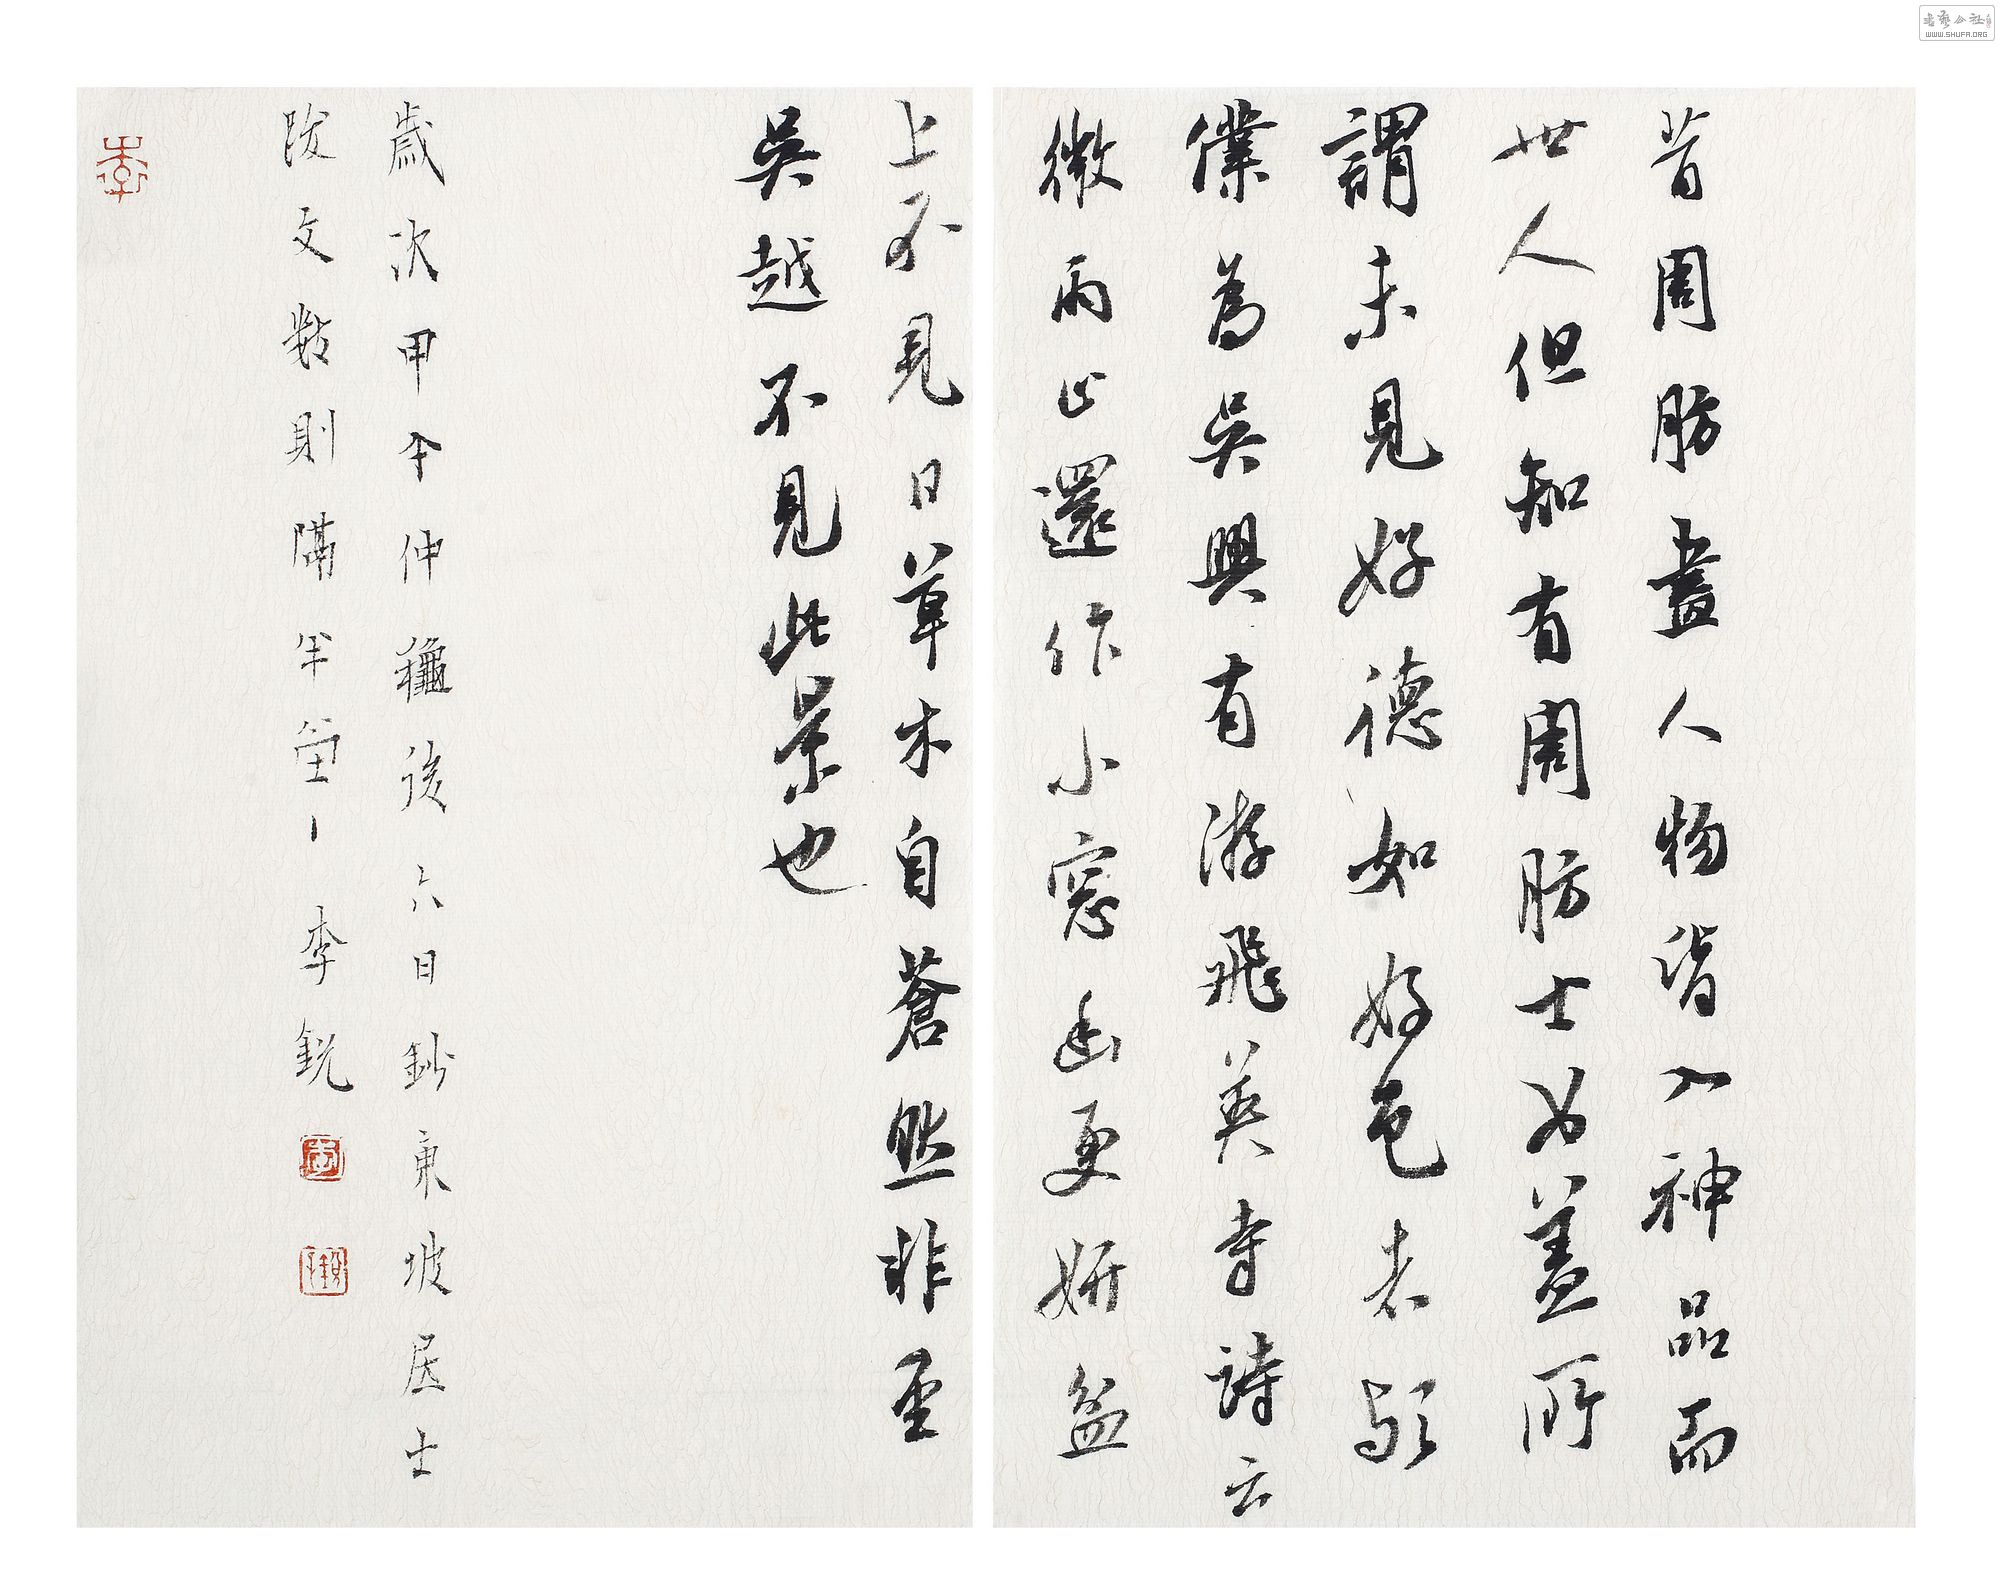 昔周肪畫人物皆入神品而
世人但知有周肪士女蓋所
謂未見好德如好色者歟
僕為吳興有游飛英寺詩云
微雨止還作小窓幽更妍盆
上不見日草木自蒼然非至
吳越不見此景也
歲次甲午仲龝後六日鈔東坡居士
跋文數則隔 李銳
書藝公社
WWW.SHUFA.ORG